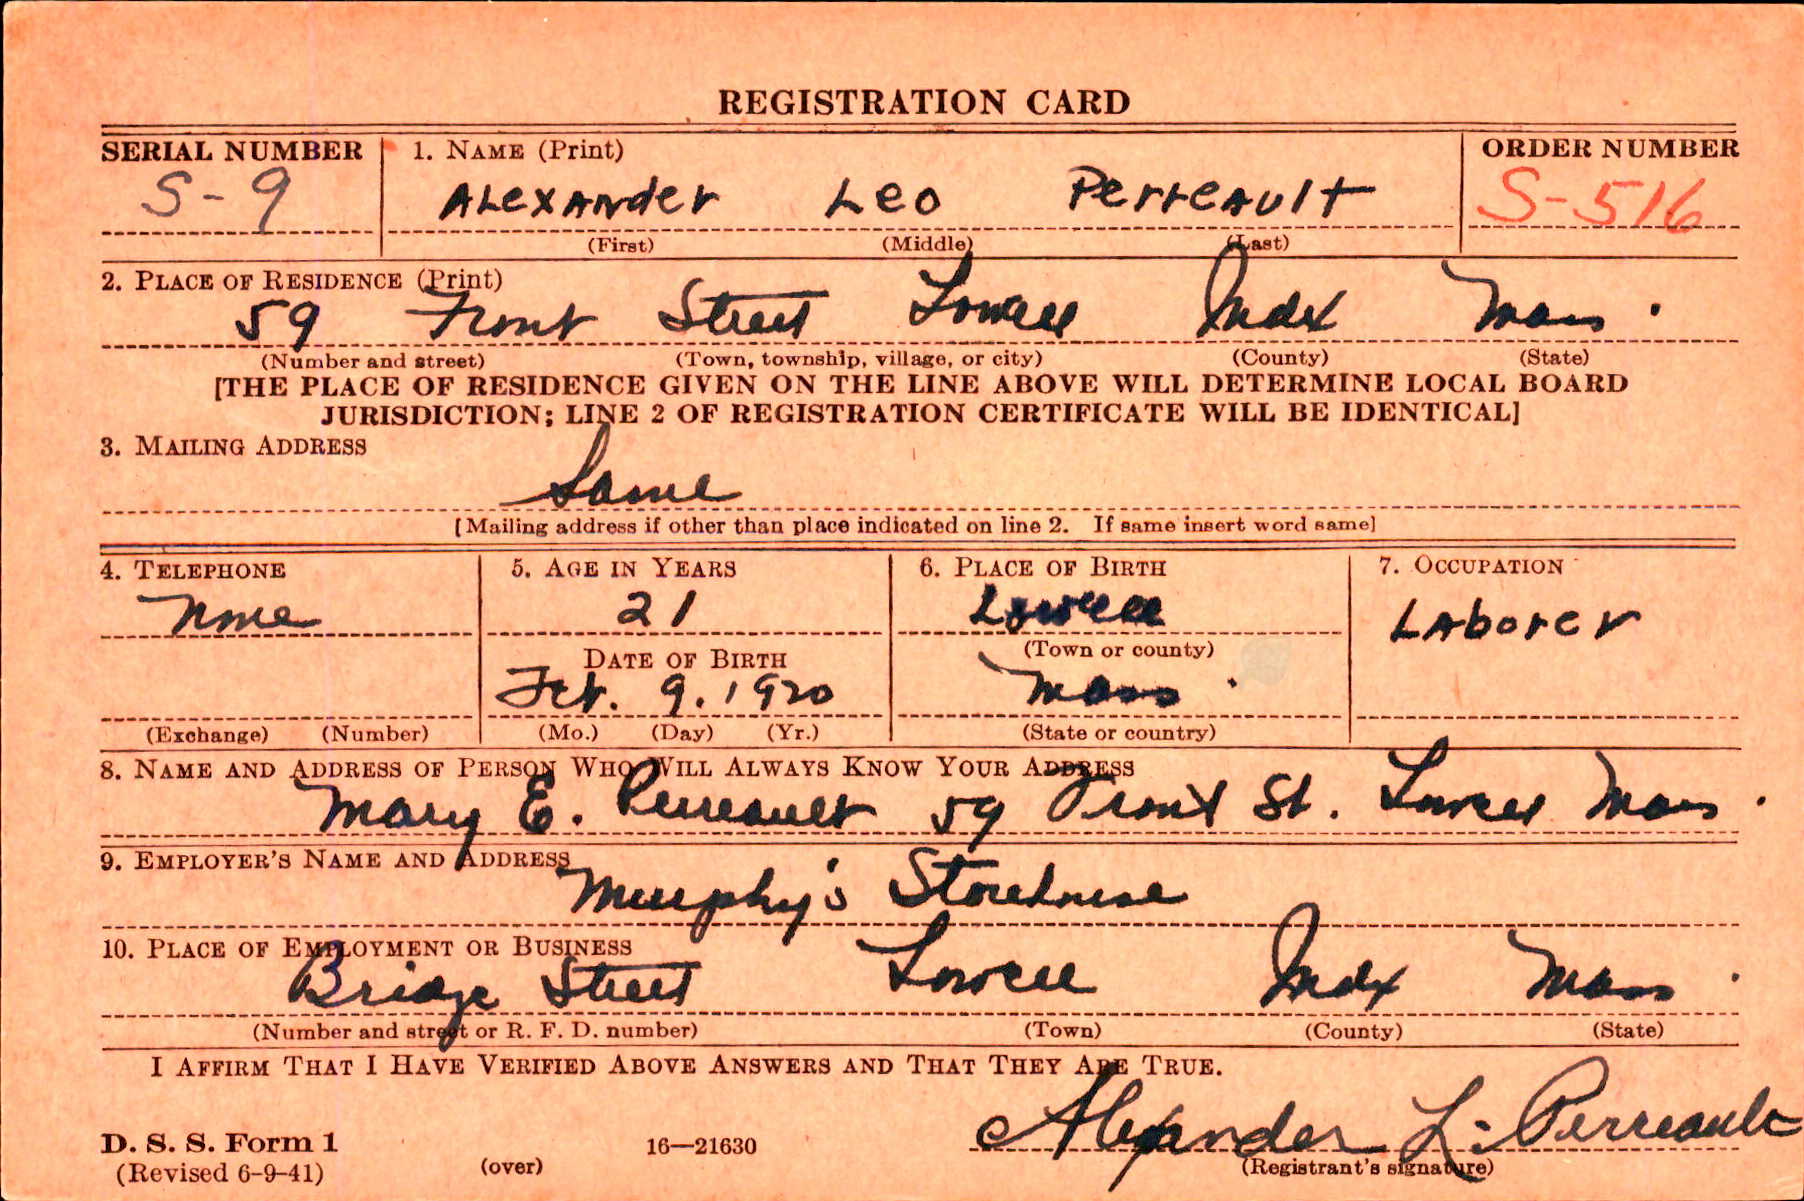 REGISTRATION CARD
SERIAL NUMBER 1. NAME (Print) ORDER NUMBER
S-9 ALEXANder Leo PerreAult S-516
(First) (Middle) (Last)
2. PLACE OF RESIDENCE (Print)
59 Front Street Lowell Mdx Mass.
(Number and street) (Town, township, village, or city) (County) (State)
[THE PLACE OF RESIDENCE GIVEN ON THE LINE ABOVE WILL DETERMINE LOCAL BOARD
JURISDICTION; LINE 2 OF REGISTRATION CERTIFICATE WILL BE IDENTICAL]
3. MAILING ADDRESS
Same
[Mailing address if other than place indicated on line 2. If same insert word same]
4. TELEPHONE 5. AGE IN YEARS 6. PLACE OF BIRTH 7. OCCUPATION
None 21 Lowell LAborer
DATE OF BIRTH (Town or county)
Feb. 9. 1920 Mass.
(Exchange) (Number) (Mo.) (Day) (Yr.) (State or country)
8. NAME AND ADDRESS OF PERSON WHO WILL ALWAYS KNOW YOUR ADDRESS
Mary E. Perreault 59 Front St. Lowell Mass.
9. EMPLOYER'S NAME AND ADDRESS
Murphy's Storehouse
10. PLACE OF EMPLOYMENT OR BUSINESS
Bridge Street Lowell Mdx Mass.
(Number and street or R. F. D. number) (Town) (County) (State)
I AFFIRM THAT I HAVE VERIFIED ABOVE ANSWERS AND THAT THEY ARE TRUE.
Alexander L. Perreault
D. S. S. Form 1 16—21630
(Revised 6-9-41) (over) (Registrant's signature)